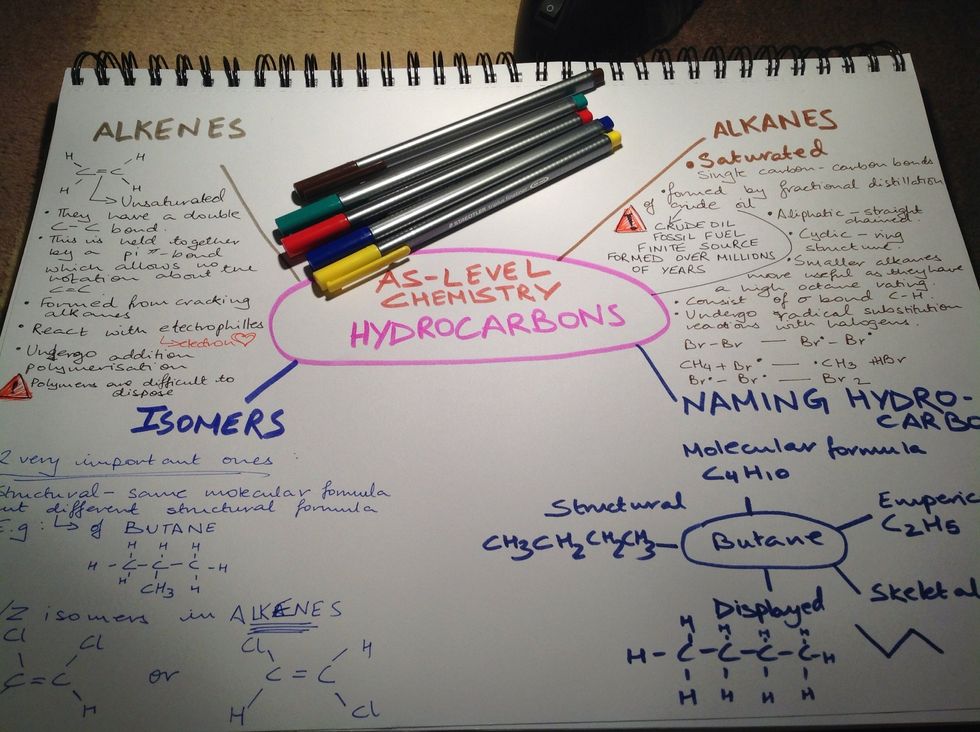 ALKENES
H H
C=C
H H
Unsaturated
• They have a double
C-C bond.
• This is held together
by a pi π-bond
which allows no
rotation about the
C=C
• Formed from cracking
alkanes
• React with electrophilles
electron♡
• Undergo addition
polymerisation
! Polymers are difficult to
dispose
STAEDTLER
AS-LEVEL
CHEMISTRY
HYDROCARBONS
ALKANES
• Saturated
Single carbon-carbon bonds
• formed by fractional distillation
of crude oil
! CRUDE OIL
FOSSIL FUEL
FINITE SOURCE
FORMED OVER MILLIONS
OF YEARS
• Aliphatic - straight
chained
• Cyclic - ring
structure.
• Smaller alkanes
more useful as they have
a high octane rating.
• Consist of σ bond C-H.
• Undergo radical substitution
reactions with halogens.
Br-Br — Br• - Br•
CH4 + Br• — •CH3 + HBr
Br• - Br• — Br2
ISOMERS
2 very important ones :
Structural - same molecular formula
but different structural formula
E.g : of BUTANE
H H H
H - C - C - C - H
H CH3 H
E/Z isomers in ALKENES
Cl Cl
C=C
H
or
Cl H
C=C
H Cl
NAMING HYDRO-
CARBO
Molecular formula
C4H10
Structural
CH3CH2CH2CH3
Butane
Emperic
C2H5
Skeletal
Displayed
H H H H
H-C-C-C-C-H
H H H H